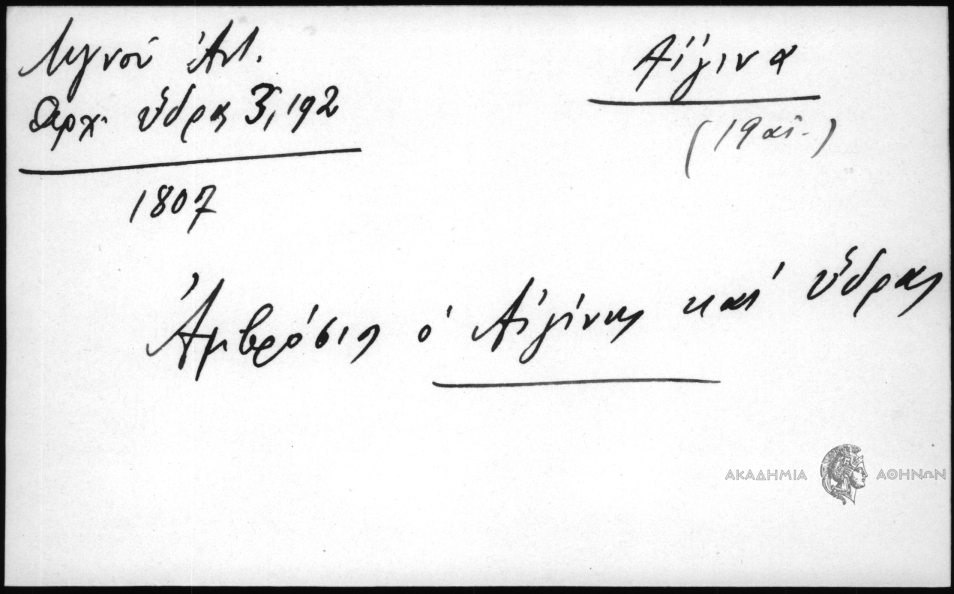 Λιγνού Ἀντ.
Ἀρχ. Ὕδρας 3, 192
1807
Αἴγινα
(19 αἰ.)
Ἀμβρόσιος ὁ Αἰγίνης καὶ Ὕδρας
ΑΚΑΔΗΜΙΑ ΑΘΗΝΩΝ